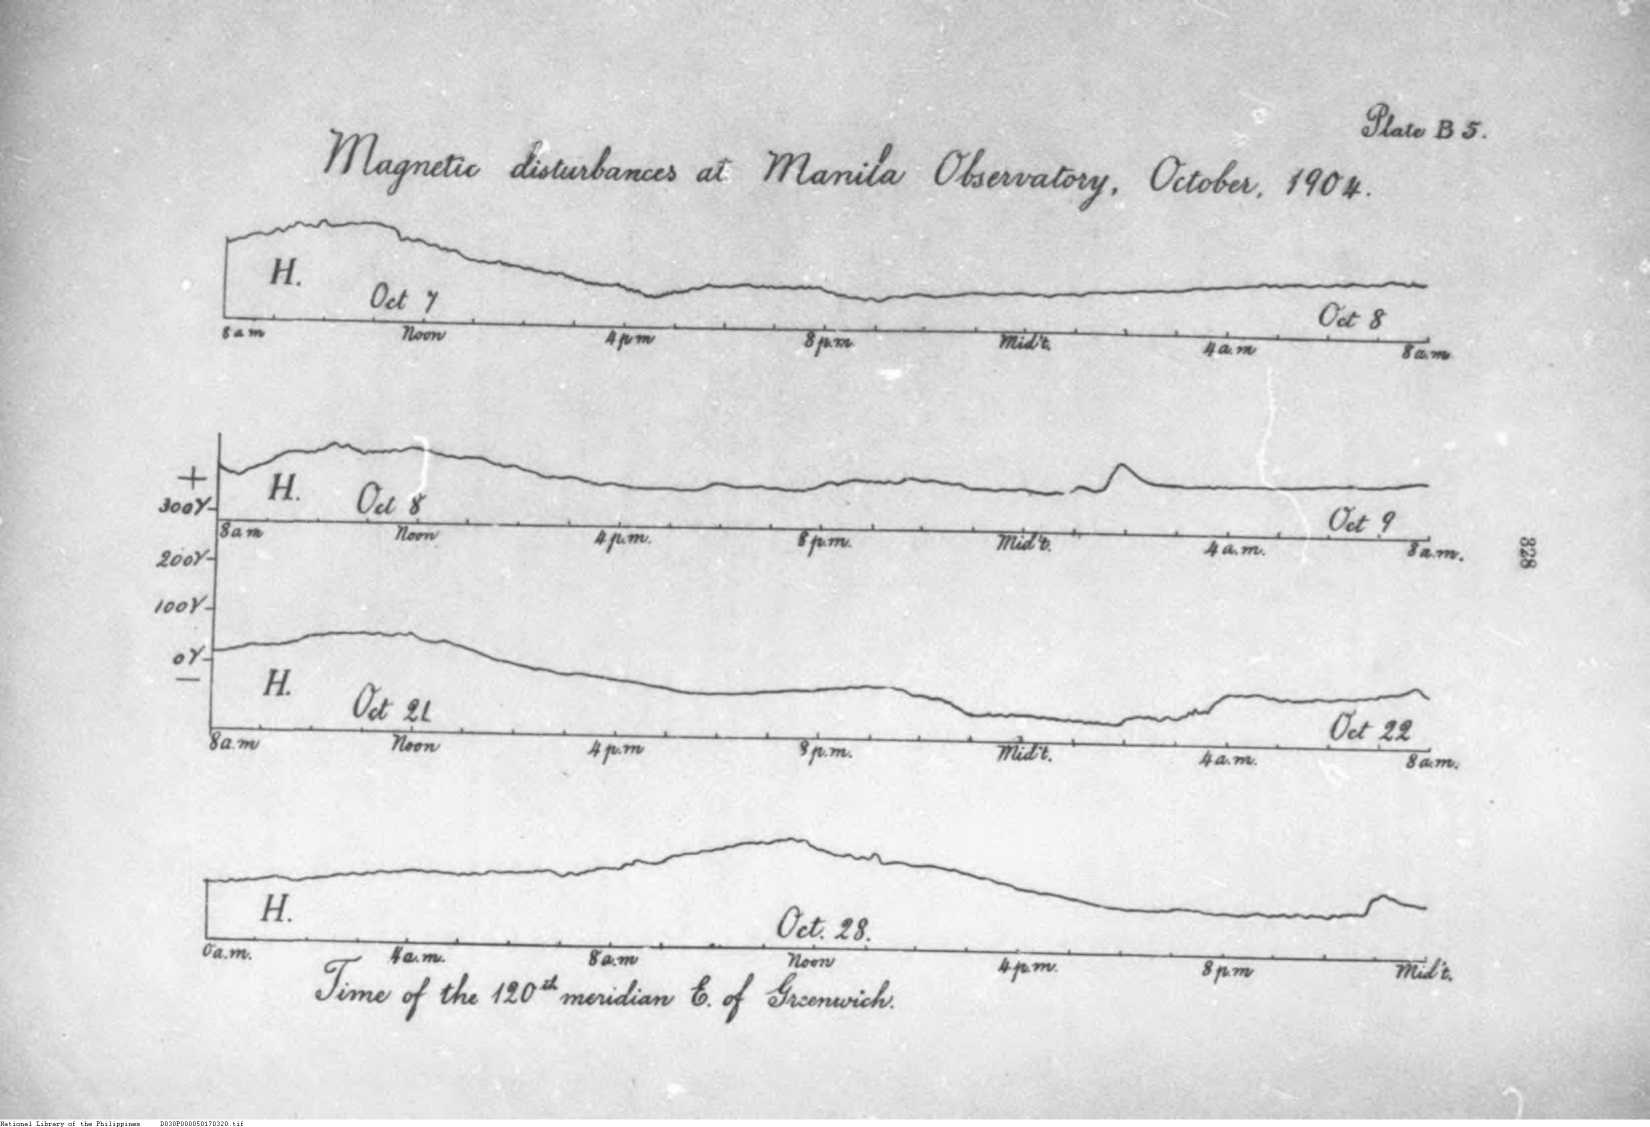 Plate B 5.
Magnetic disturbances at Manila Observatory, October, 1904.
H.
Oct 7
Oct 8
8 a m Noon 4 p m 8 p.m. Mid't. 4 a.m 8 a.m.
+
300γ
200γ
100γ
0γ
—
H.
Oct 8
Oct 9
8 a m Noon 4 p.m. 8 p.m. Mid't. 4 a.m. 8 a.m.
328
H.
Oct 21
Oct 22
8 a.m Noon 4 p.m 8 p.m. Mid't. 4 a.m. 8 a.m.
H.
Oct. 28.
0 a.m. 4 a.m. 8 a.m Noon 4 p.m. 8 p m Mid't.
Time of the 120th meridian E. of Greenwich.
National Library of the Philippines D030P000050170320.tif